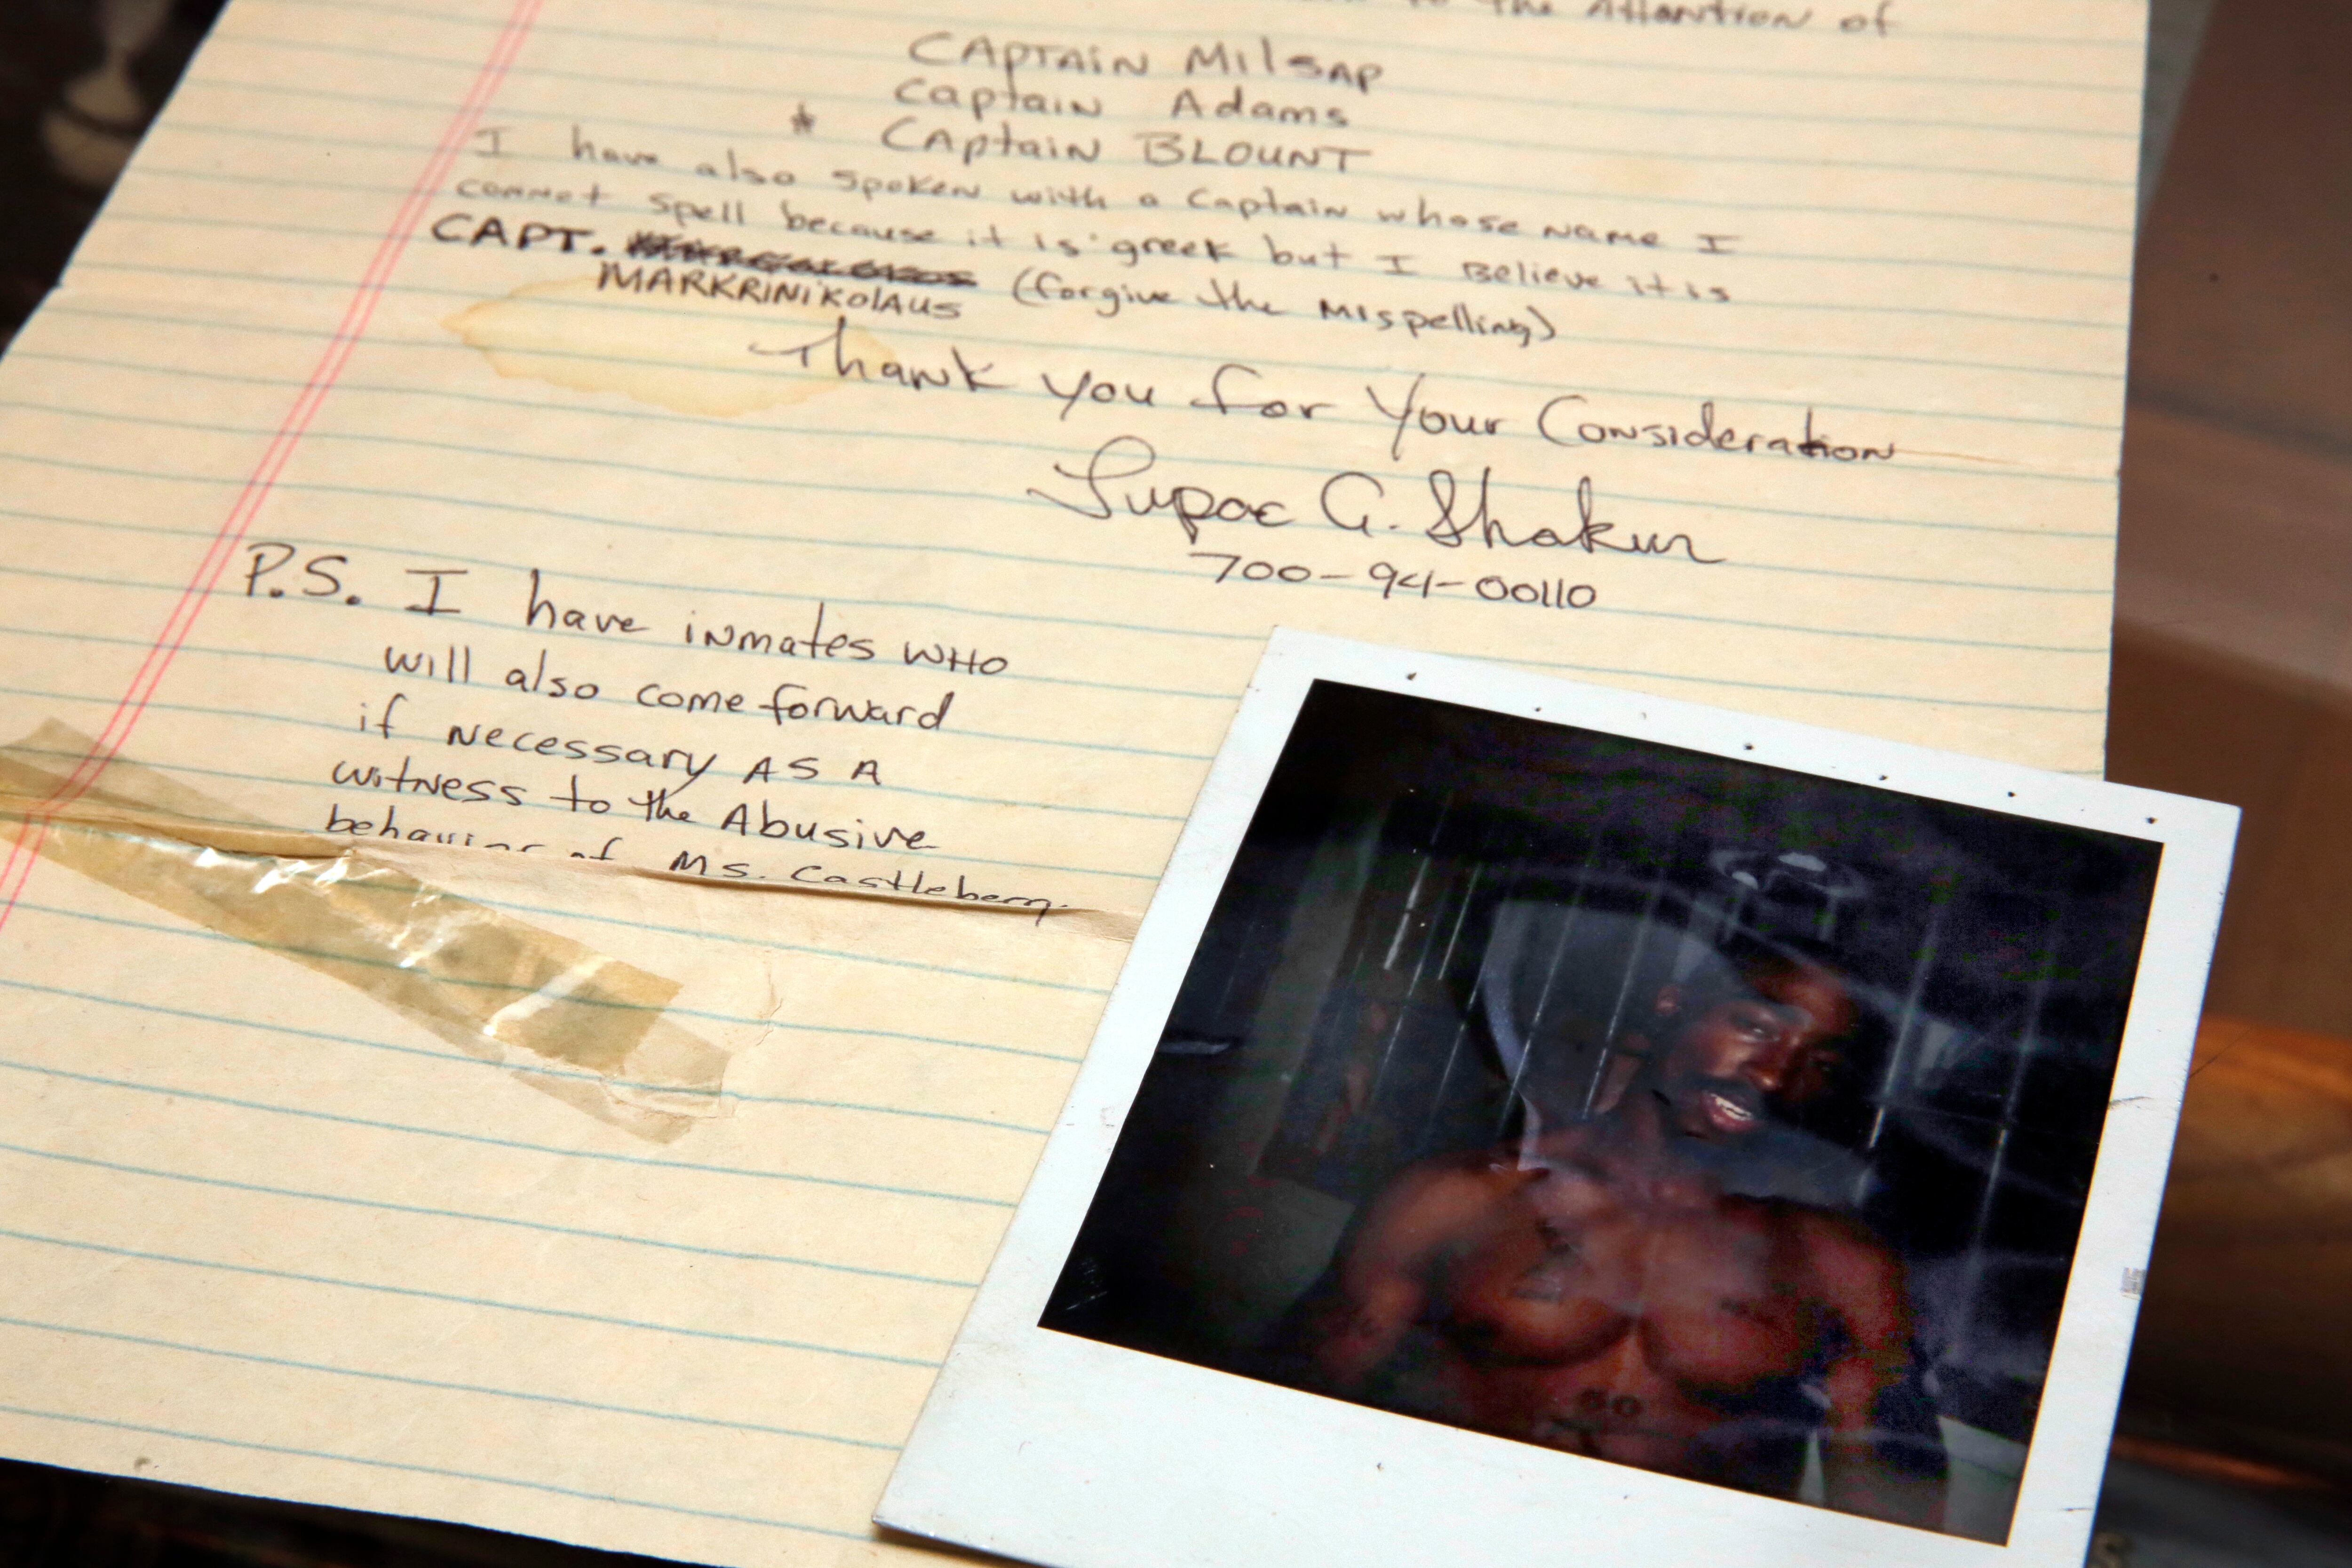 to the Attention of
CAPTAIN MilSAP
Captain Adams
* CAptaiN BLOUNT
I have also spoken with a Captain whose name I
cannot spell because it is greek but I Believe it is
CAPT.
MARKRINiKOlAUS (forgive the Mispelling)
Thank you for Your Consideration
Tupac A. Shakur
700-94-00110
P.S. I have inmates WHO
will also come forward
if necessary AS A
witness to the Abusive
behavior of Ms. Castleberry
50